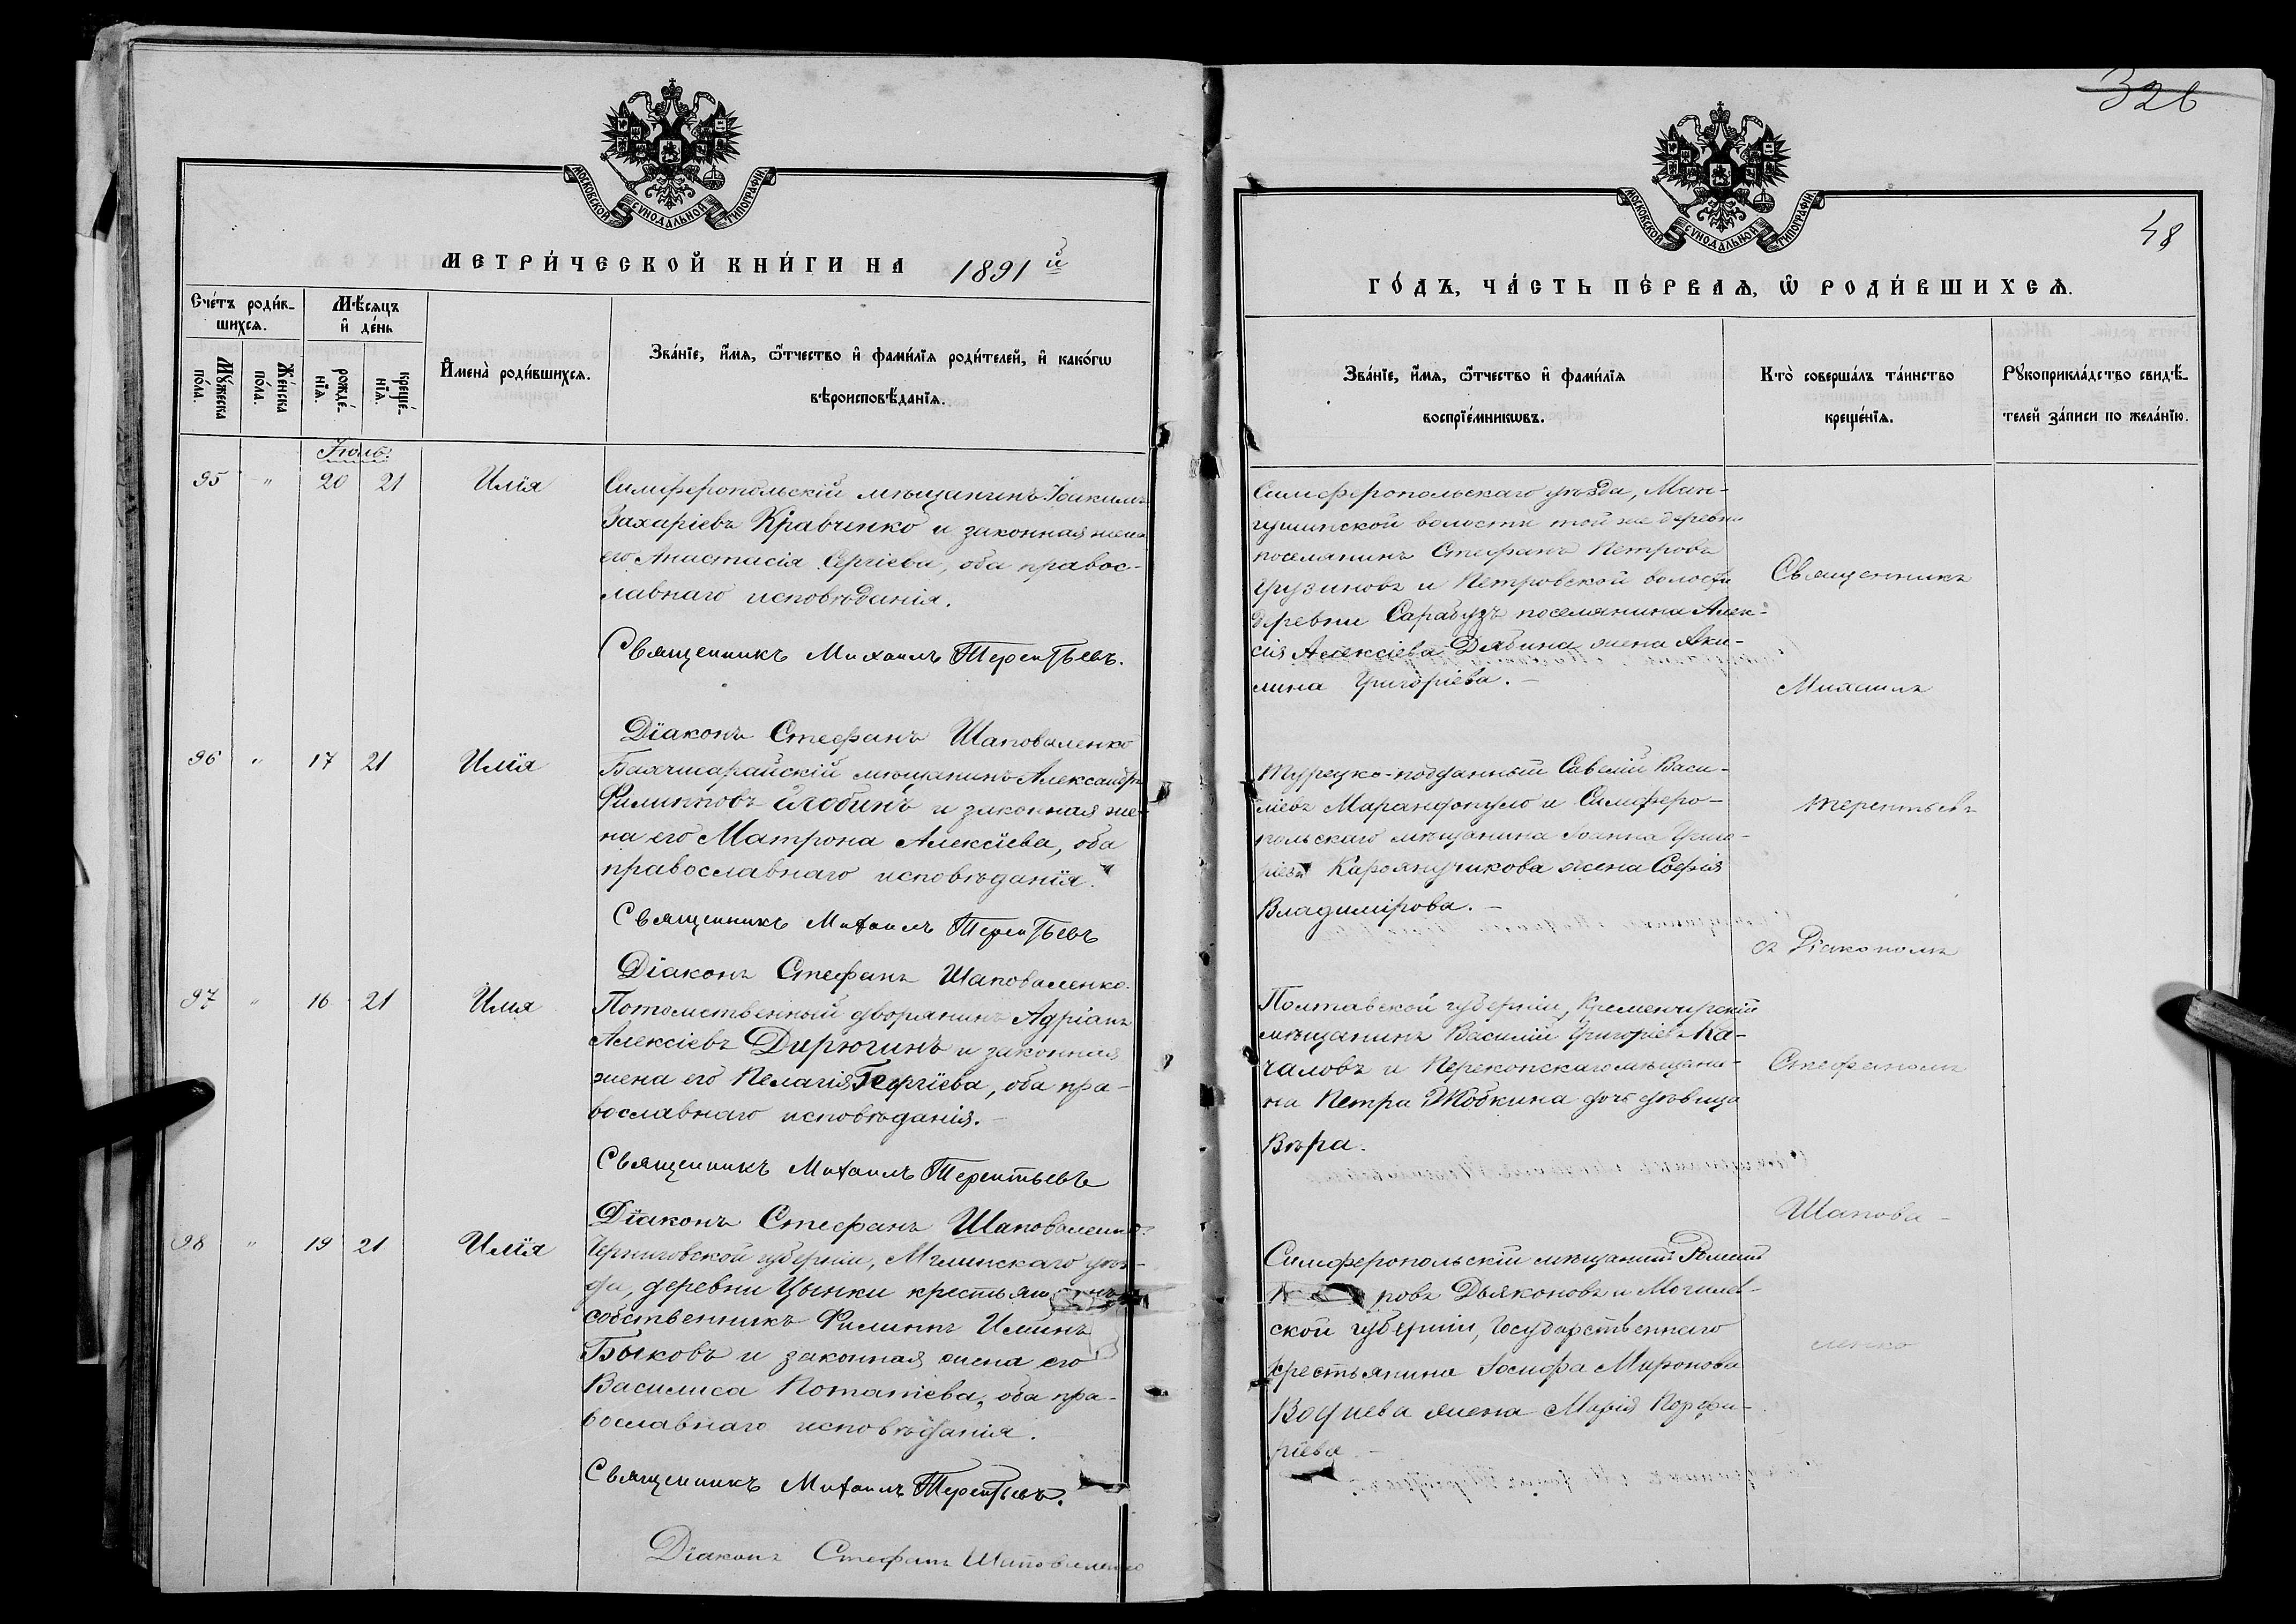 МОСКОВСКОЙ СѴНОДАЛЬНОЙ ТИПОГРАФІИ
МЕТРИ́ЧЕСКОЙ КНИ́ГИ НА 1891й
Сче́тъ роди́в-
шихсѧ.
Мꙋ́жеска
по́ла.
Же́нска
по́ла.
Мѣ́сѧцъ
и҆ де́нь
рожде́-
нїѧ.
креще́-
нїѧ.
И҆мена̀ роди́вшихсѧ.
Зва́нїе, и҆́мѧ, ѻ҆́тчество и҆ фамі́лїѧ роди́телей, и҆ како́гѡ
вѣроисповѣ́данїѧ.
Іюль.
95 " 20 21 Илія
Симферопольскій мѣщанинъ Іоакимъ
Захаріевъ Кравченко и законная жена
его Анастасія Сергіева, оба правос-
лавнаго исповѣданія.
Священникъ Михаилъ Терентьевъ.
Діаконъ Стефанъ Шаповаленко
96 " 17 21 Илія
Бахчисарайскій мѣщанинъ Александръ
Филипповъ и законная же-
на его Матрона Алексіева, оба
православнаго исповѣданія.
Священникъ Михаилъ Терентьевъ
Діаконъ Стефанъ Шаповаленко.
97 " 16 21 Илія
Потомственный дворянинъ Адріанъ
Алексіевъ Дирюгинъ и законная
жена его Пелагія Георгіева, оба пра-
вославнаго исповѣданія.
Священникъ Михаилъ Терентьевъ
Діаконъ Стефанъ Шаповаленко
98 " 19 21 Илія
Черниговской губерніи, Мглинскаго уѣз-
да, деревни Цынки
собственникъ Филиппъ Илiинъ
Быковъ и законная жена его
Василиса Потапіева, оба пра-
вославнаго исповѣданія.
Священникъ Михаилъ Терентьевъ.
Діаконъ Стефанъ Шаповаленко
326
48
МОСКОВСКОЙ СѴНОДАЛЬНОЙ ТИПОГРАФІИ
ГО́ДЪ, ЧА́СТЬ ПЕ́РВАѦ, Ѡ҆ РОДИ́ВШИХСѦ.
Зва́нїе, и҆́мѧ, ѻ҆́тчество и҆ фамі́лїѧ
воспрїе́мникѡвъ.
Кто̀ соверша́лъ та́инство
креще́нїѧ.
Рꙋкоприкла́дство свидѣ́-
телей за́писи по жела́нїю.
Симферопольскаго уѣзда, Ман-
гушинской волости той же деревни
поселянинъ Стефанъ Петровъ
Грузиновъ и Петровской волости
деревни Сарабузъ поселянина Алек-
сія Алексіева Дябина жена Аки-
лина Григоріева.
Турецко-подданный Савелій Васи-
ліевъ Марандопуло и Симферо-
польскаго мѣщанина Іоанна Григо-
ріева жена Софія
Владимірова.
Полтавской губерніи, Кременчугскій
мѣщанинъ Василій Григоріевъ Ка-
чаловъ и Перекопскаго мѣщани-
на Петра Жобкина дочь дѣвица
Вѣра.
Симферопольскій мѣщанинъ
ровъ Дьяконовъ и Могилев-
ской губерніи, Государственнаго
крестьянина Іосифа Миронова
Воднева жена Марія Порфи-
ріева
Священникъ
Михаилъ
Терентьевъ
съ Діакономъ
Стефаномъ
Шапова-
ленко